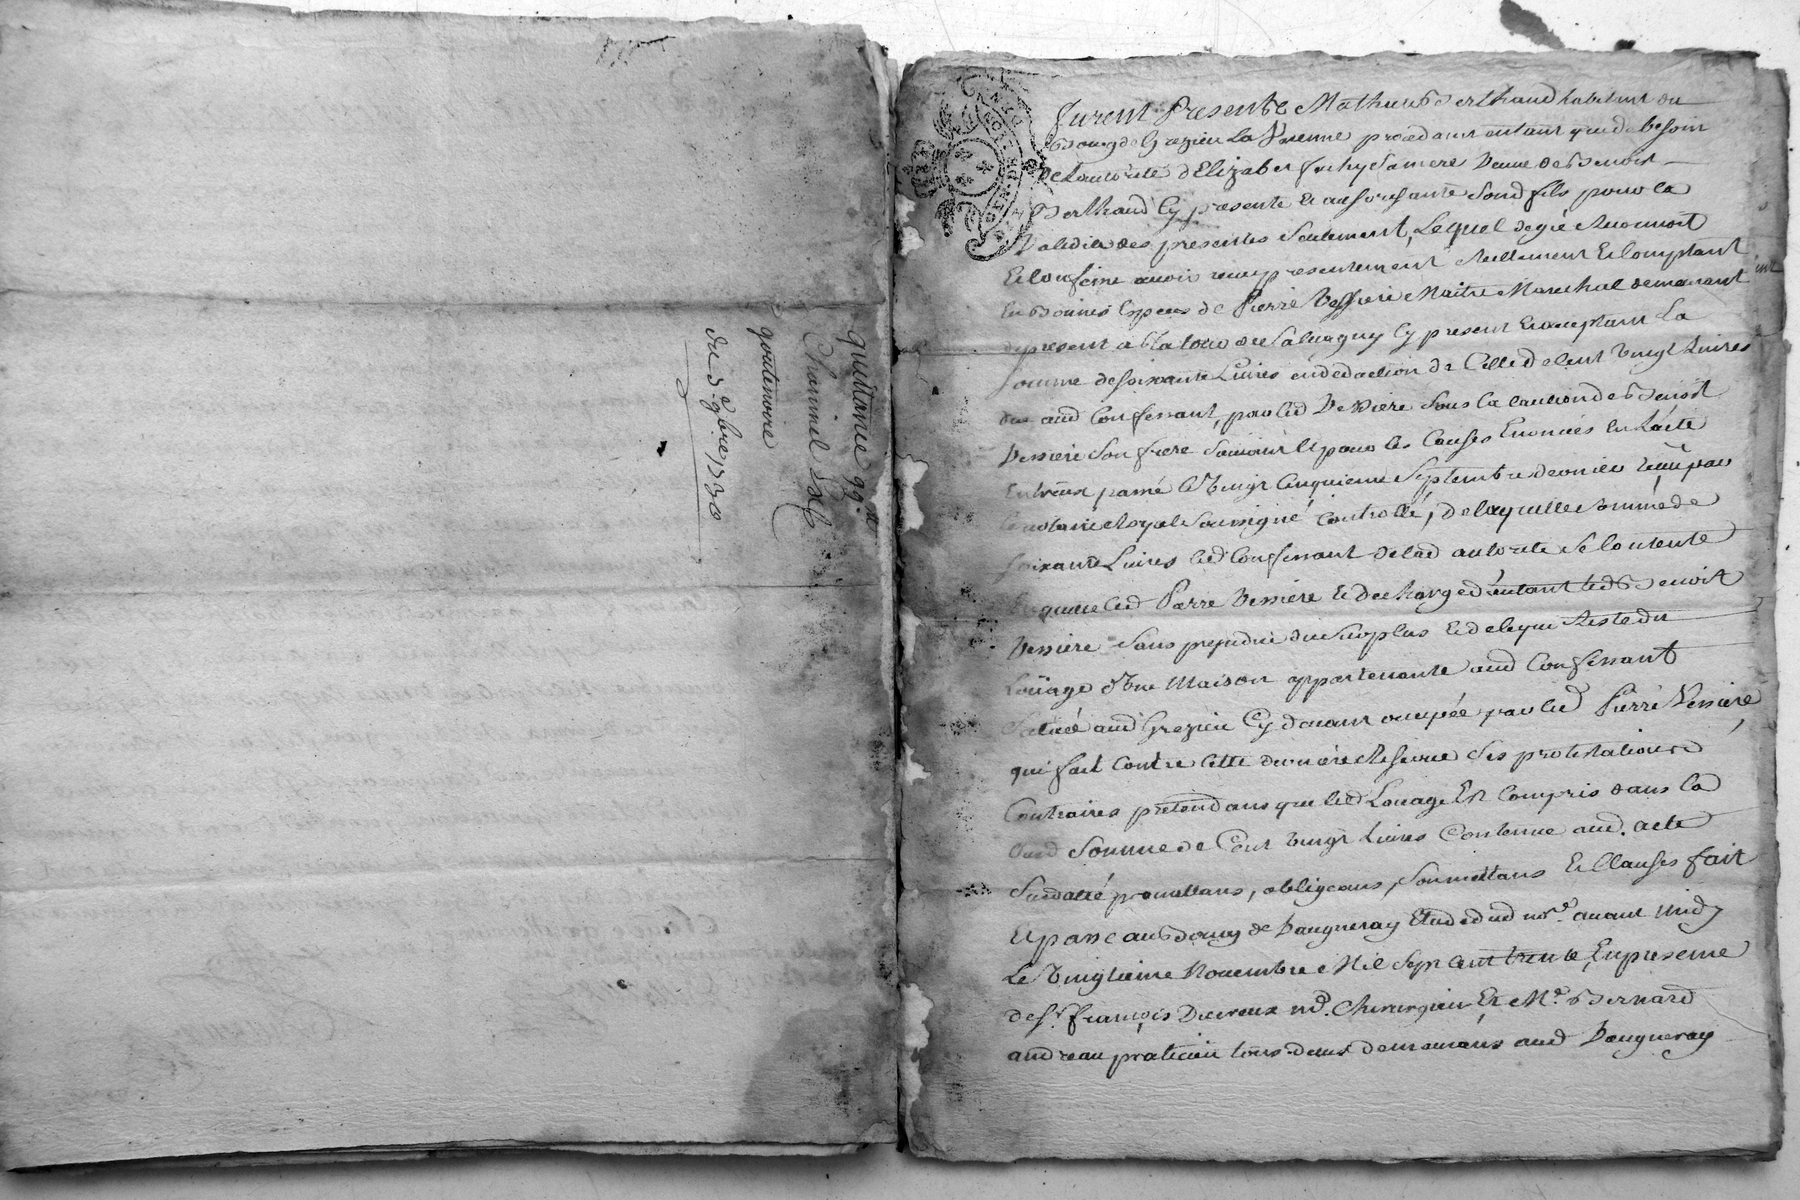 quittance
Chaninel
goutenoire
du 9.bre 1730
GEN DE LYON
furent Presents Mathieu Berthaud habitant du
Bourg de Grezieu La Varenne procedant entant que de besoin
de Lautorité d'Elizabet sa mere veuve de Benoit
Berthaud cy presente et authorisante sond fils pour la
validité des presentes seulement, Lequel de gré reconnoit
et confesse avoir receu presentement reellement et comptant
en bonnes especes de Pierre Vessiere Maitre Marechal demeurant
a present a la tour de Salvagny cy present et acceptant La
somme de soixante Livres en deduction de Celle de Cent vingt Livres
due aud Confessant, par led Vessiere sous la caution de Benoist
Vessiere son frere pour les Causes Enoncées en L'acte
entreux passé le vingt cinquieme Septembre dernier receu par
le notaire Royal soussigné controllé, de laquelle somme de
soixante Livres led Confessant de lad autorité se contente
en quitte led Pierre Vessiere et decharge d'autant led Benoit
Vessiere sans prejudice du surplus et de ce que reste du
Loüage d'Une Maison appartenante aud Confessant
Située aud Grezieu Cy devant occupée par led Pierre Vessiere,
qui fait Contre Cette derniere Reserve ses protestations
Contraires pretendans que led Louage Est Compris dans la
susd Somme de Cent vingt Livres Contenue aud. acte
susdatté promettans, obligeans, soumettans et Clauses fait
et passé au Bourg de Vaugneray Etude dud nore. avant midy
Le vingtieme Novembre Mil Sept Cent trente, En presence
de Sr. françois Ducreux md. Chirurgien Et Me. Bernard
andreau praticien tous deux demeurans aud Vaugneray